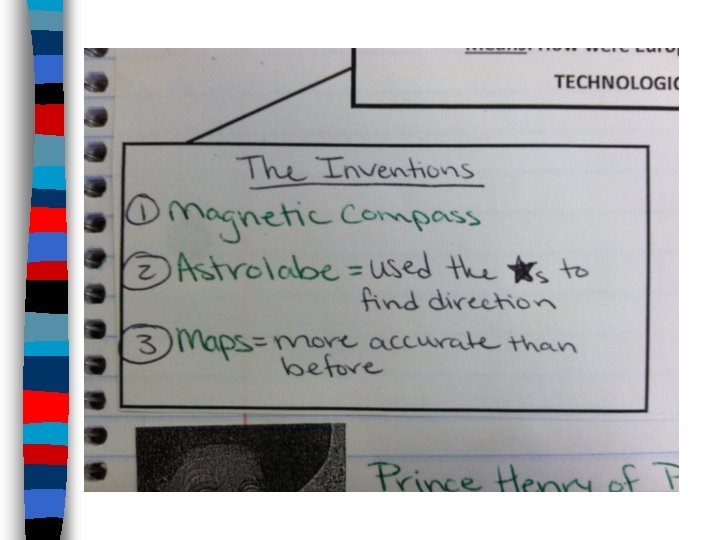 TECHNOLOGIC
The Inventions
① Magnetic Compass
② Astrolabe = used the ★s to
find direction
③ Maps = more accurate than
before
Prince Henry of P